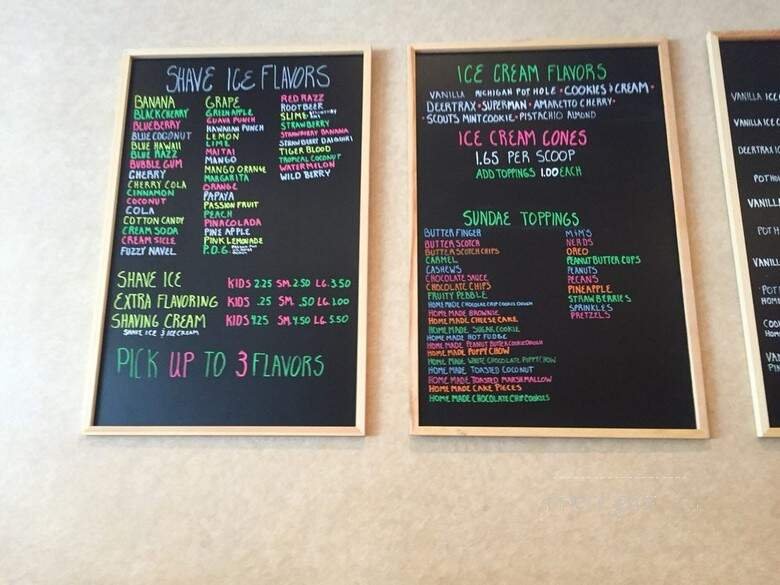 SHAVE ICE FLAVORS
BANANA
BLACK CHERRY
BLUEBERRY
BLUE COCONUT
BLUE HAWAII
BLUE RAZZ
BUBBLE GUM
CHERRY
CHERRY COLA
CINNAMON
COCONUT
COLA
COTTON CANDY
CREAM SODA
CREAM SICLE
FUZZY NAVEL
GRAPE
GREEN APPLE
GUAVA PUNCH
HAWAIIAN PUNCH
LEMON
LIME
MAITAI
MANGO
MANGO ORANGE
MARGARITA
ORANGE
PAPAYA
PASSION FRUIT
PEACH
PINACOLADA
PINE APPLE
PINK LEMONADE
P.O.G.
RED RAZZ
ROOTBEER
SLIME
STRAWBERRY
STRAWBERRY BANANA
STRAWBERRY DAIQUIRI
TIGER BLOOD
TROPICAL COCONUT
WATERMELON
WILD BERRY
SHAVE ICE KIDS 2.25 SM. 2.50 LG. 3.50
EXTRA FLAVORING KIDS .25 SM. .50 LG. 1.00
SHAVING CREAM KIDS 4.25 SM. 4.50 LG. 5.50
SHAVE ICE & ICE CREAM
PICK UP TO 3 FLAVORS
ICE CREAM FLAVORS
VANILLA MICHIGAN POT HOLE • COOKIES & CREAM •
DEERTRAX • SUPERMAN • AMARETTO CHERRY •
• SCOUTS MINT COOKIE • PISTACHIO ALMOND
ICE CREAM CONES
1.65 PER SCOOP
ADD TOPPINGS 1.00 EACH
SUNDAE TOPPINGS
BUTTER FINGER
BUTTER SCOTCH
BUTTER SCOTCH CHIPS
CARMEL
CASHEWS
CHOCOLATE SAUCE
CHOCOLATE CHIPS
FRUITY PEBBLE
HOME MADE CHOCOLATE CHIP COOKIE DOUGH
HOME MADE BROWNIE
HOME MADE CHEESE CAKE
HOME MADE SUGAR COOKIE
HOME MADE HOT FUDGE
HOME MADE PEANUT BUTTER COOKIE DOUGH
HOME MADE PUPPY CHOW
HOME MADE WHITE CHOCOLATE PUPPY CHOW
HOME MADE TOASTED COCONUT
HOME MADE TOASTED MARSHMALLOW
HOME MADE CAKE PIECES
HOME MADE CHOCOLATE CHIP COOKIES
M&M'S
NERDS
OREO
PEANUT BUTTER CUPS
PEANUTS
PECANS
PINEAPPLE
STRAWBERRIES
SPRINKLES
PRETZELS
VANILLA ICE
VANILLA ICE C
DEERTRAX IC
POTHO
VANILL
POT H
VANILL
POT
HOM